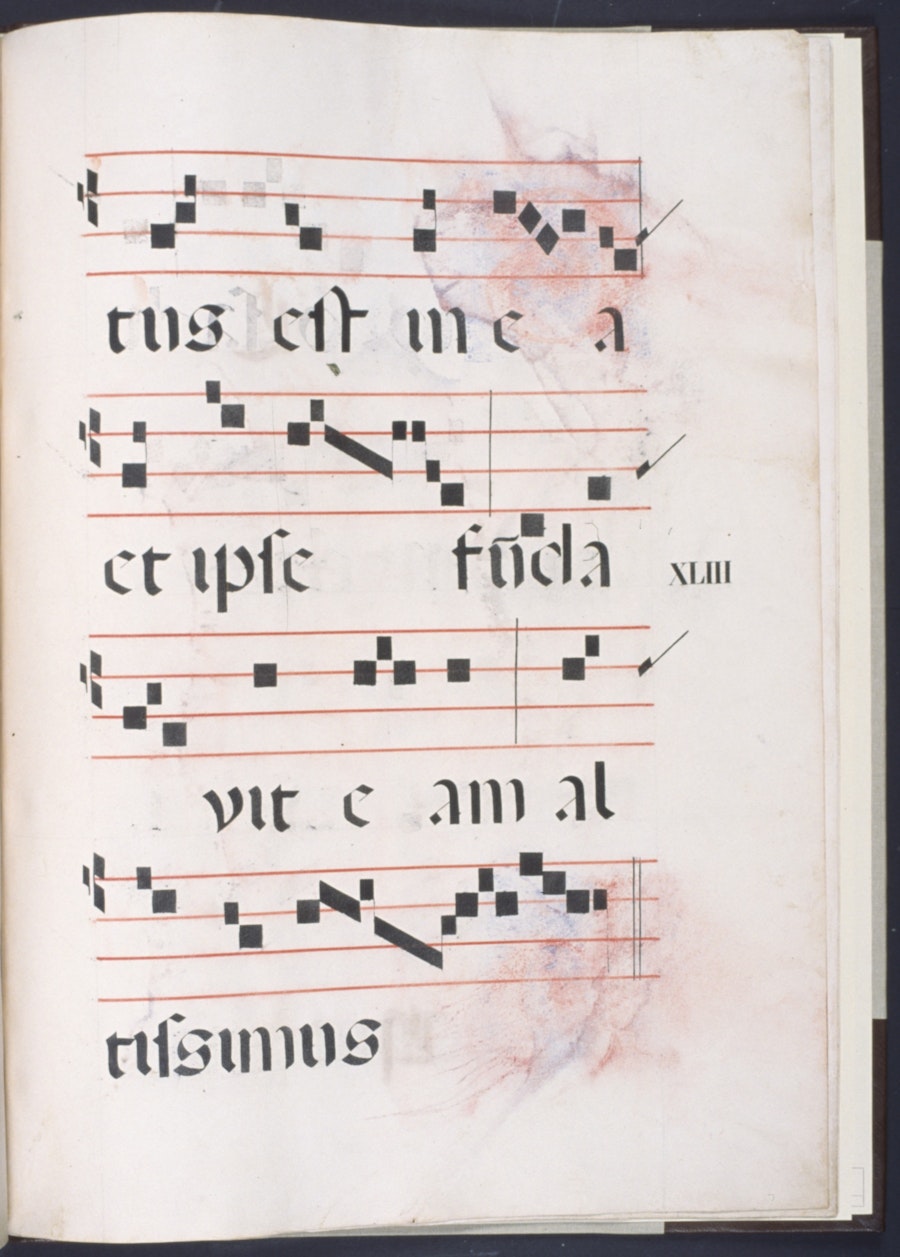 tus est in e a
et ipse fūda
XLIII
vit e am al
tissimus